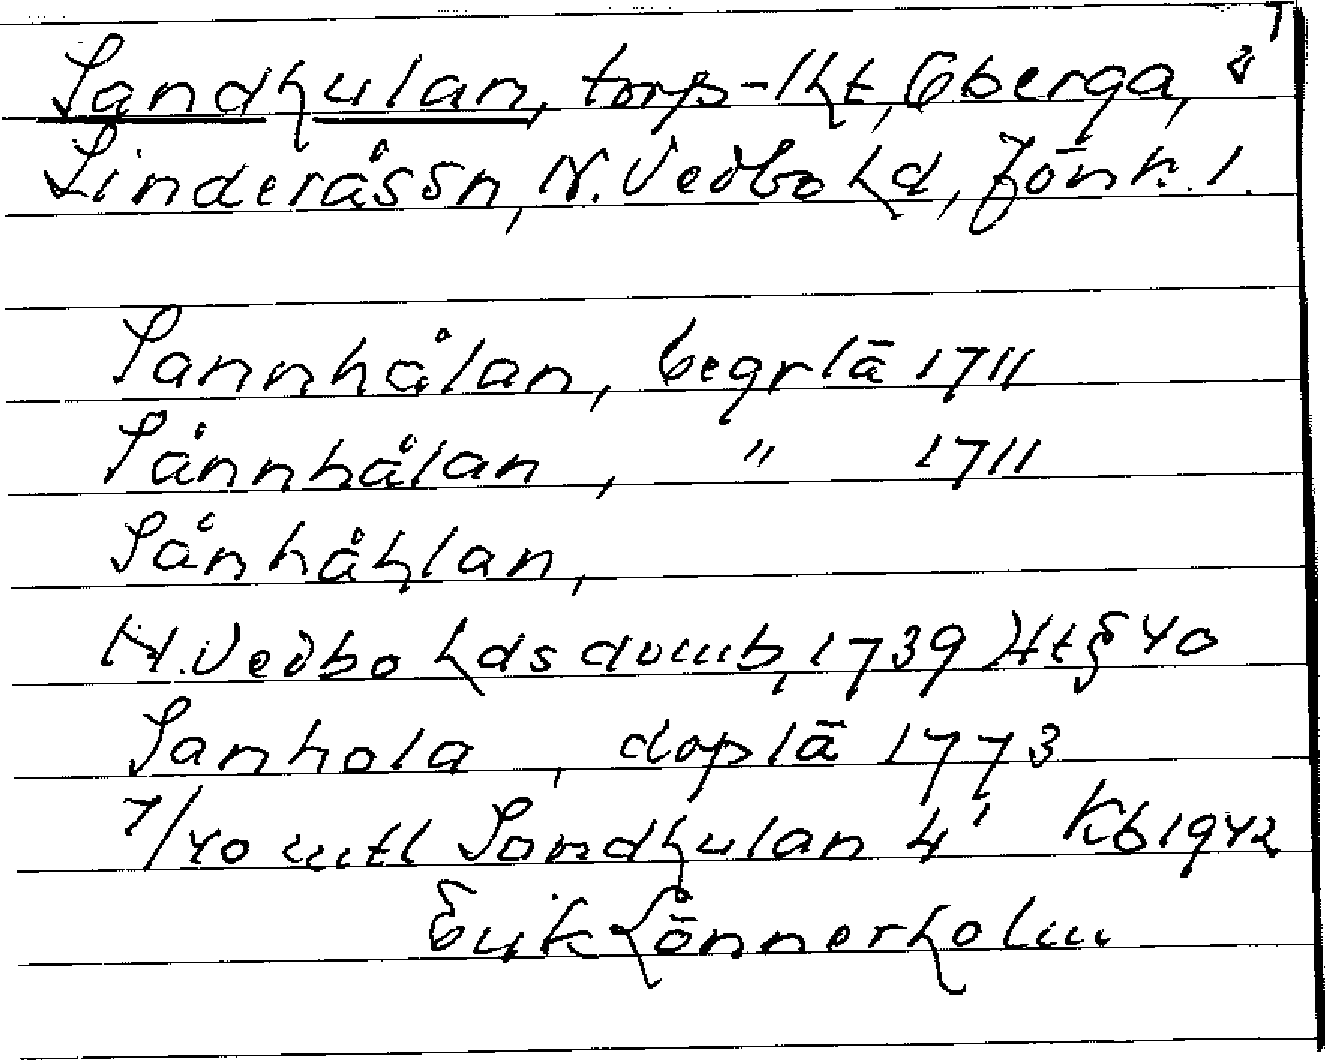 Sandhulan, torp-lht, Öberga, 4¹
Linderås sn, N. Vedbo hd, Jönk. l.
Sannhålan, begrlä 1711
Sånnhålan, " 1711
Sånhåhlan,
N. Vedbo hds domb, 1739 Ht § 40
Sanhola, doplä 1773
7/40 mtl Sandhulan 4¹ Kb 1942
Erik Lönnerholm